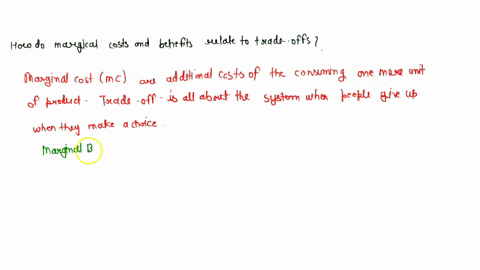 How do margical costs and benefits relate to trade-offs?
Marginal cost (MC) are additional costs of the consuming one more unit
of product. Trade-off- is all about the system when people give up
when they make a choice.
Marginal B